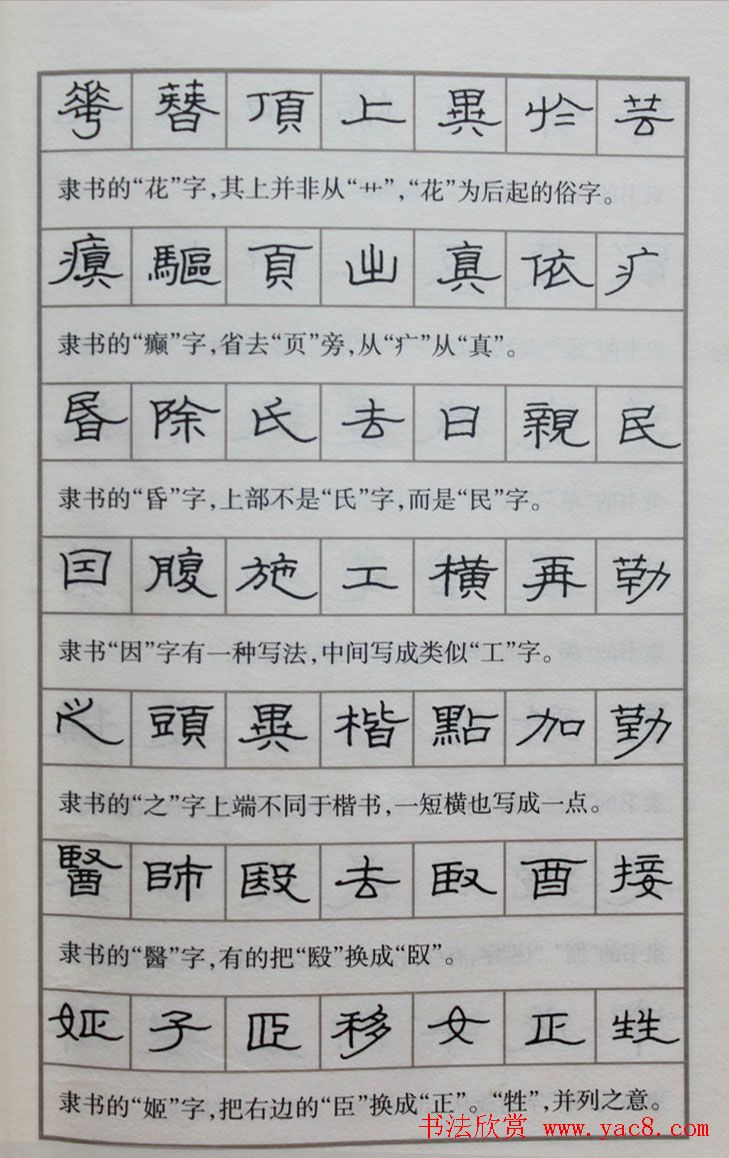 華簪頂上異於芸
隶书的“花”字,其上并非从“艹”,“花”为后起的俗字。
瘨驅頁出真依疒
隶书的“癫”字,省去“页”旁,从“疒”从“真”。
昬除氏去日親民
隶书的“昏”字,上部不是“氏”字,而是“民”字。
囙腹施工橫再勒
隶书“因”字有一种写法,中间写成类似“工”字。
之頭異楷點加勤
隶书的“之”字上端不同于楷书,一短横也写成一点。
醫師殹去臤酉接
隶书的“醫”字,有的把“殹”换成“臤”。
姃子臣移女正甡
隶书的“姬”字,把右边的“臣”换成“正”。“甡”,并列之意。
书法欣赏 www.yac8.com